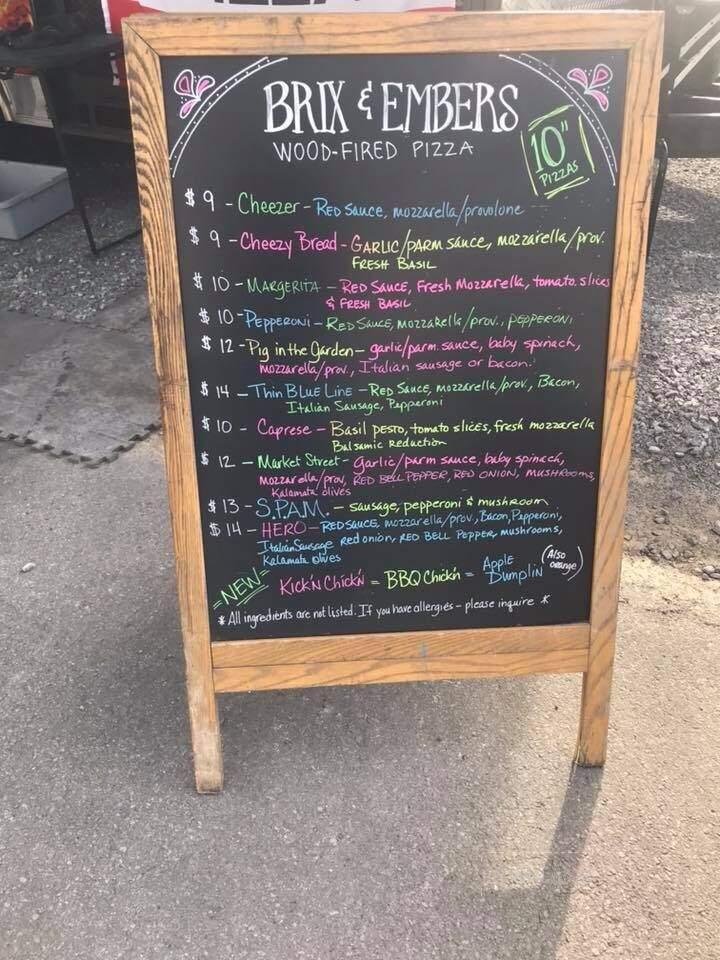 BRIX & EMBERS
WOOD-FIRED PIZZA
10"
PIZZAS
$9 - Cheezer - RED SAUCE, mozzarella/provolone
$9 - Cheezy Bread - GARLIC/PARM SAUCE, mozzarella/prov.
FRESH BASIL
$10 - MARGERITA - RED SAUCE, FRESH MOZZARELLA, tomato slices
& FRESH BASIL
$10 - PEPPERONI - RED SAUCE, MOZZARELLA/prov., PEPPERONI
$12 - Pig in the Garden - garlic/parm. sauce, baby spinach,
mozzarella/prov., Italian sausage or bacon.
$14 - Thin BLUE LINE - RED SAUCE, mozzarella/prov., Bacon,
Italian Sausage, Pepperoni
$10 - Caprese - Basil PESTO, tomato slices, fresh mozzarella
Balsamic REDUCTION
$12 - Market Street - garlic/parm sauce, baby spinach,
mozzarella/prov, RED BELL PEPPER, RED ONION, MUSHROOMS,
Kalamata olives
$13 - S.P.A.M. - sausage, pepperoni & mushroom
$14 - HERO - RED SAUCE, mozzarella/prov., Bacon, Pepperoni,
Italian Sausage, red onion, RED BELL PEPPER, mushrooms,
Kalamata olives
NEW KICK'N CHICK'N = BBQ Chick'n = Apple Dumplin (Also orange)
* All ingredients are not listed. If you have allergies - please inquire *